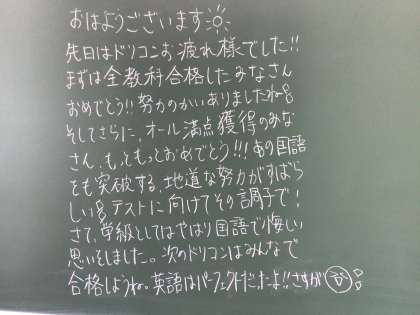 おはようございます
先日はドリコンお疲れ様でした!!
まずは全教科合格したみなさん
おめでとう!!努力のかいありましたね
そしてさらに、オール満点獲得のみな
さん、もっともっとおめでとう!!!あの国語
をも突破する、地道な努力がすばら
しいテストに向けてその調子で!
さて、学級としてはやはり国語で悔しい
思いをしました。次のドリコンはみんなで
合格しようね。英語はパーフェクトだったよ!!さすが